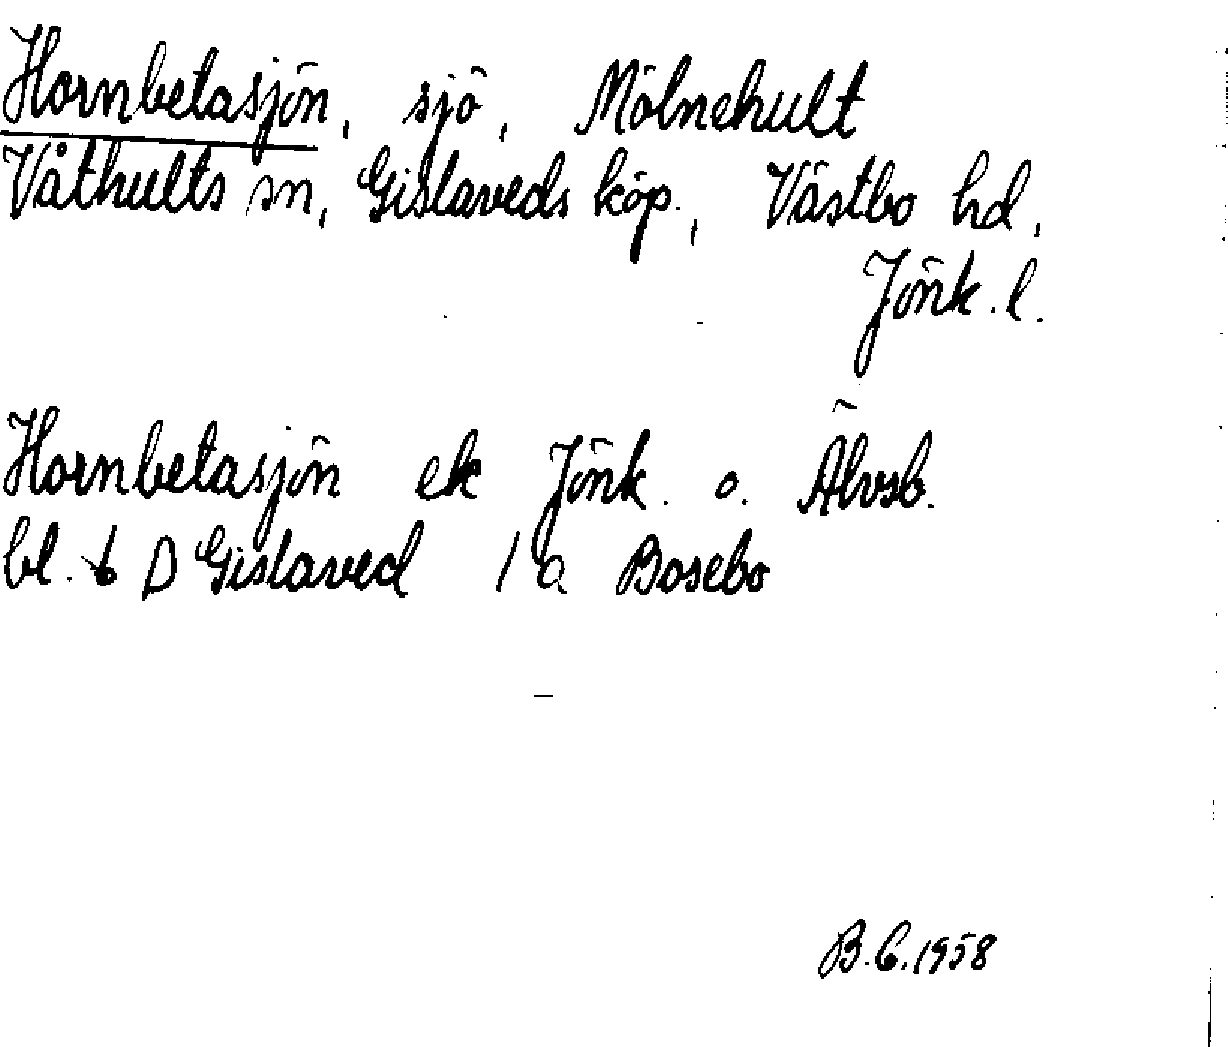 Hornbetasjön, sjö, Mölnehult
Våthults sn, Gislaveds köp., Västbo hd,
Jönk. l.
Hornbetasjön ek Jönk. o. Älvsb.
bl. 6 D Gislaved / a Bosebo
B.C. 1958